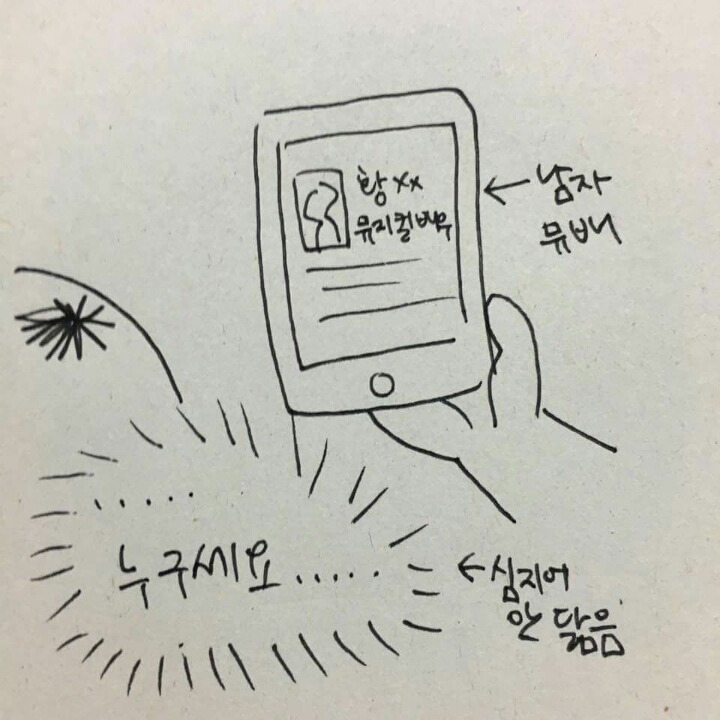 황xx
뮤지컬배우
← 남자
뮤배
.....
누구세요.....
← 심지어
안 닮음